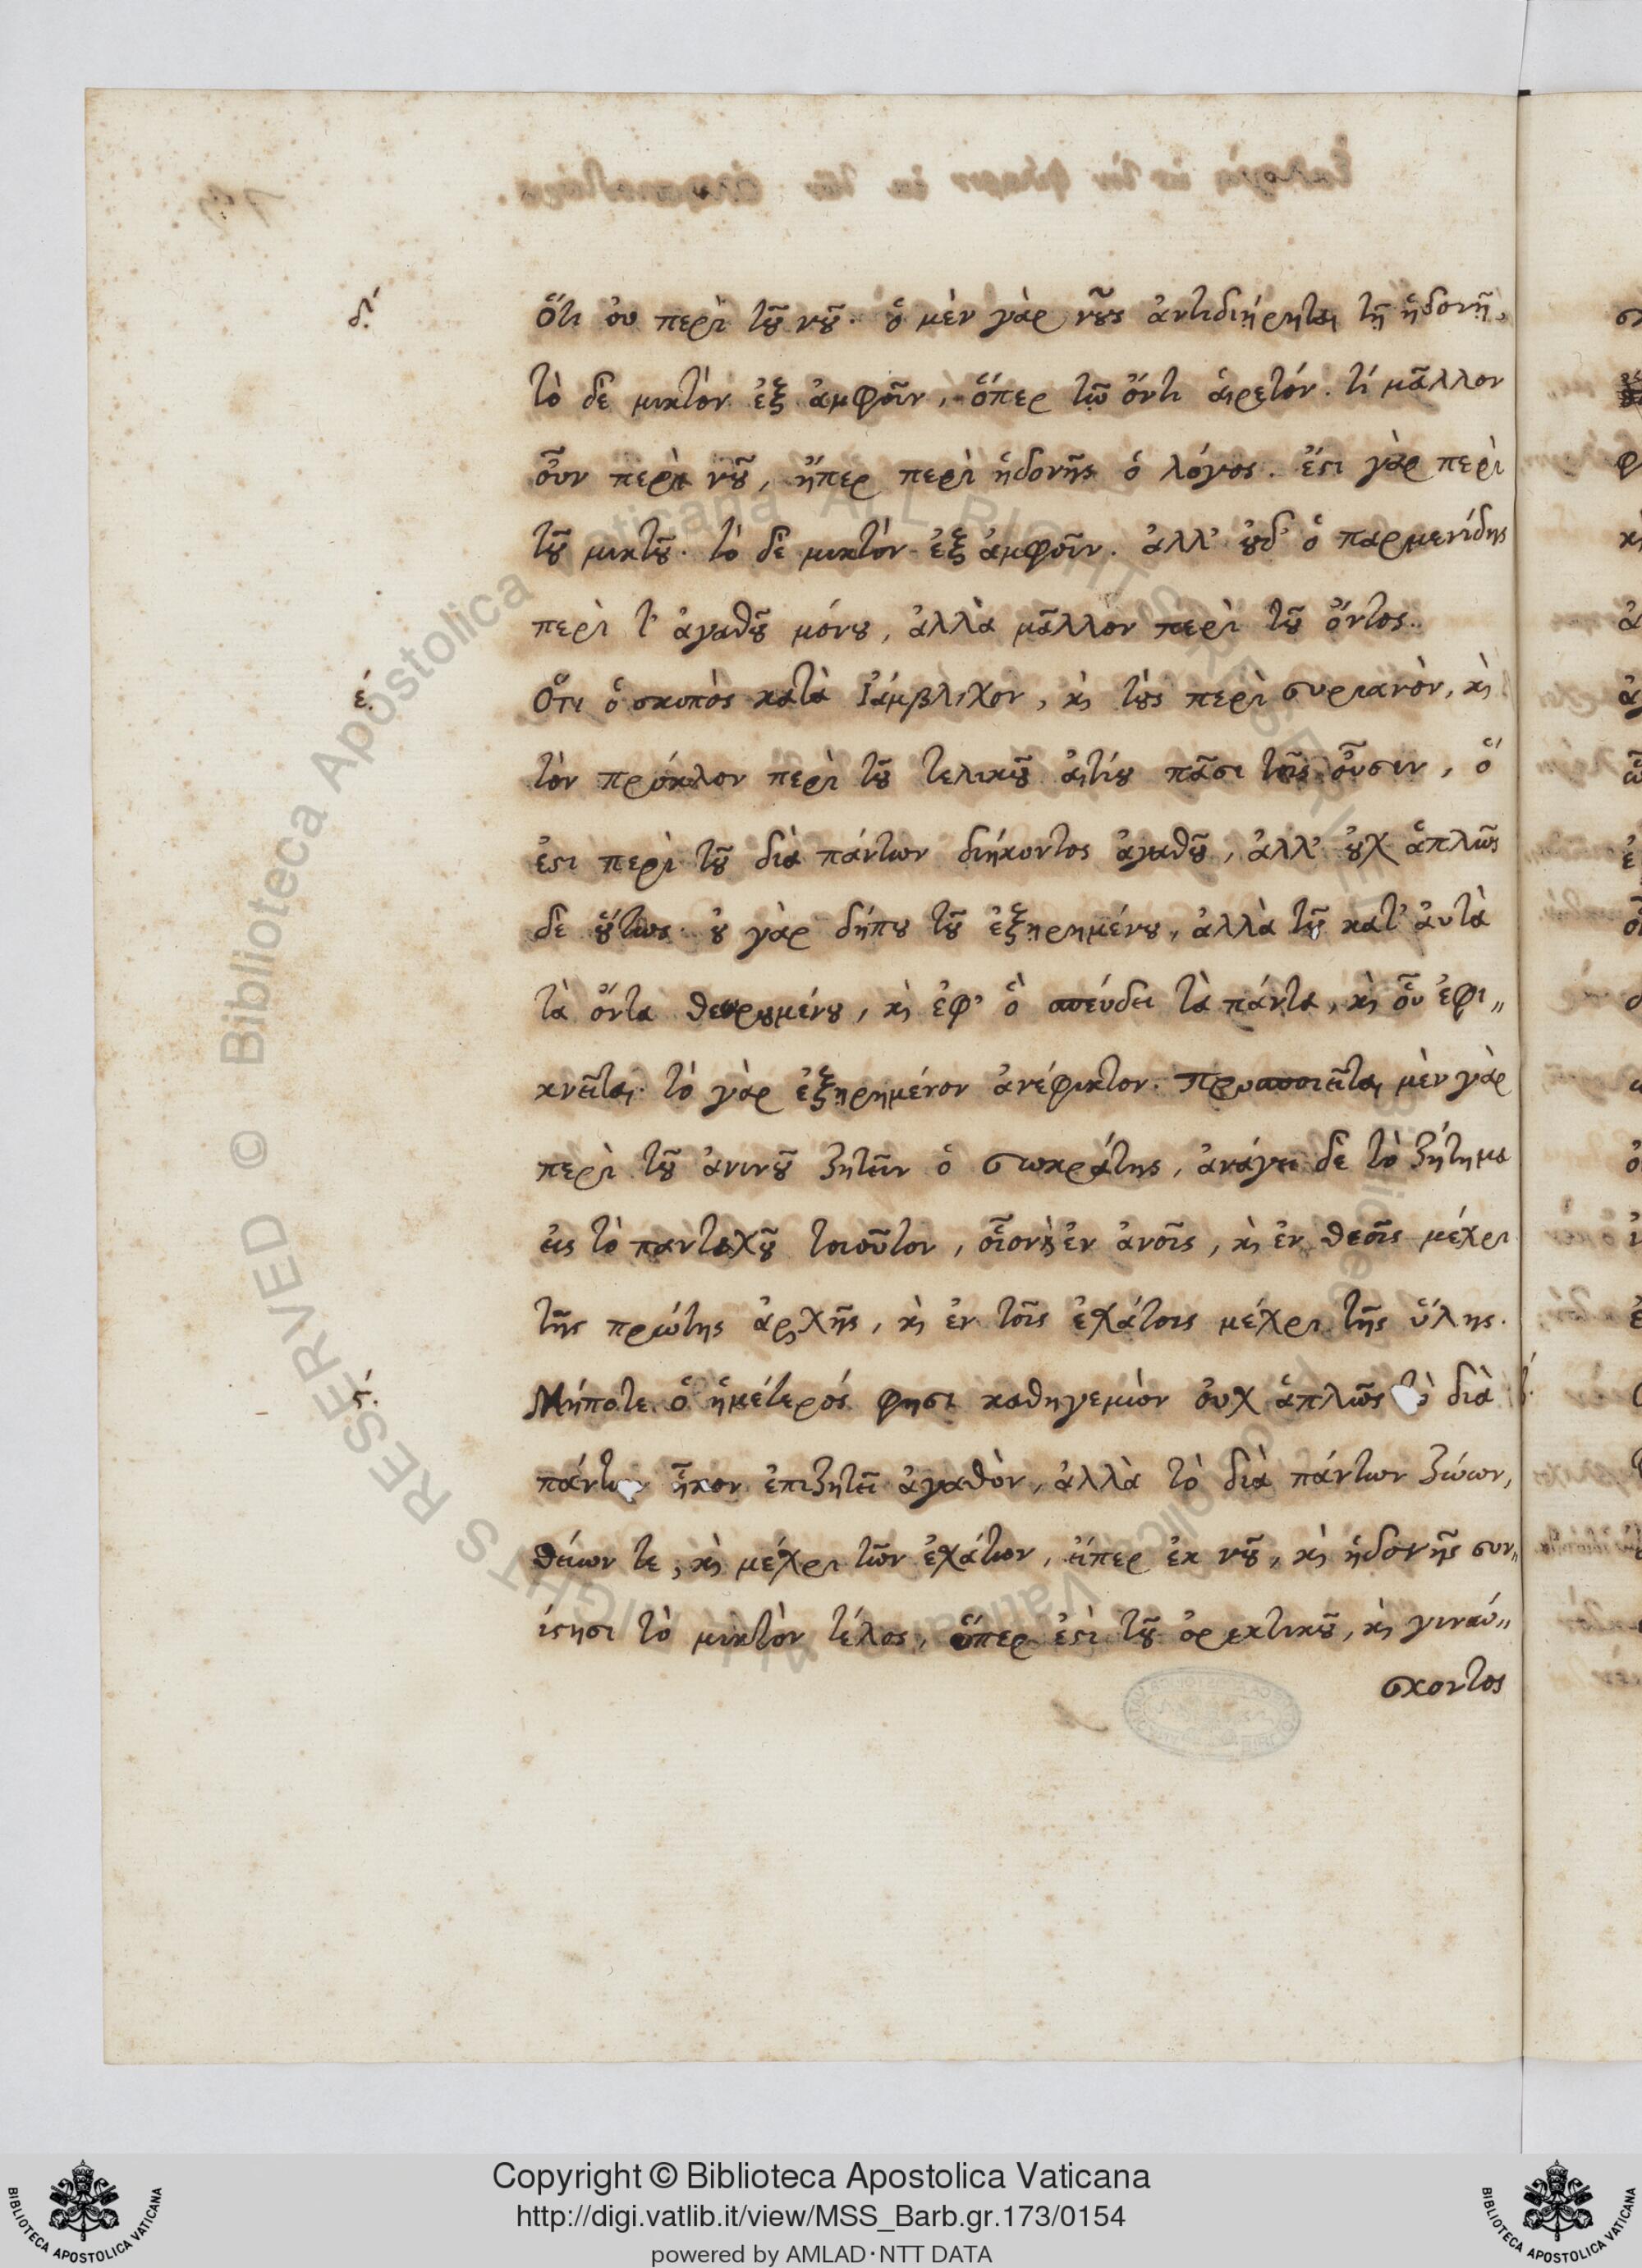 δ.´ Ὅτι οὐ περὶ τοῦ νοῦ. ὁ μὲν γὰρ νοῦς ἀντιδιῄρηται τῇ ἡδονῇ,
τὸ δὲ μικτὸν ἐξ ἀμφοῖν, ὅπερ τῷ ὄντι αἱρετόν. τί μᾶλλον
οὖν περὶ νοῦ, ἤπερ περὶ ἡδονῆς ὁ λόγος. ἔστι γὰρ περὶ
τοῦ μικτοῦ. τὸ δὲ μικτὸν ἐξ ἀμφοῖν. ἀλλ' οὐδ' ὁ παρμενίδης
περὶ τ' ἀγαθοῦ μόνου, ἀλλὰ μᾶλλον περὶ τοῦ ὄντος.
έ. Ὅτι ὁ σκοπὸς κατὰ Ἰάμβλιχον, κὶ τοὺς περὶ συριανὸν, κὶ
τὸν πρόκλον περὶ τοῦ τελικοῦ αἰτίου πᾶσι τοῖς οὖσιν, ὅ
ἐστι περὶ τοῦ διὰ πάντων διήκοντος ἀγαθοῦ, ἀλλ' οὐχ ἁπλῶς
δὲ οὕτως. οὐ γὰρ δήπου τοῦ ἐξῃρημένου, ἀλλὰ τοῦ κατ' αὐτὰ
τὰ ὄντα θεωρουμένου, κὶ ἐφ' ὃ σπεύδει τὰ πάντα, κὶ οὗ ἐφι„
κνεῖται. τὸ γὰρ ἐξῃρημένον ἀνέφικτον. προσποιεῖται μὲν γὰρ
περὶ τοῦ ἀνινοῦ ζητεῖν ὁ σωκράτης, ἀνάγει δὲ τὸ ζήτημα
εἰς τὸ πανταχοῦ τοιοῦτον, οἷον κὶ ἐν ἀνοῖς, κὶ ἐν θεοῖς μέχρι
τῆς πρώτης ἀρχῆς, κὶ ἐν τοῖς ἐχάτοις μέχρι τῆς ὕλης.
ϛ´. Μήποτε ὁ ἡμέτερός φησι καθηγεμὼν οὐχ ἁπλῶς τὸ διὰ
πάντων ἧκον ἐπιζητεῖ ἀγαθὸν, ἀλλὰ τὸ διὰ πάντων ζώων,
θείων τε, κὶ μέχρι τῶν ἐχάτων, εἴπερ ἐκ νοῦ, κὶ ἡδονῆς συν„
ίστησι τὸ μικτὸν τέλος, ὅπερ ἐστὶ τοῦ ὀρεκτικοῦ, κὶ γινώ„
σκοντος
Copyright © Biblioteca Apostolica Vaticana
http://digi.vatlib.it/view/MSS_Barb.gr.173/0154
powered by AMLAD·NTT DATA